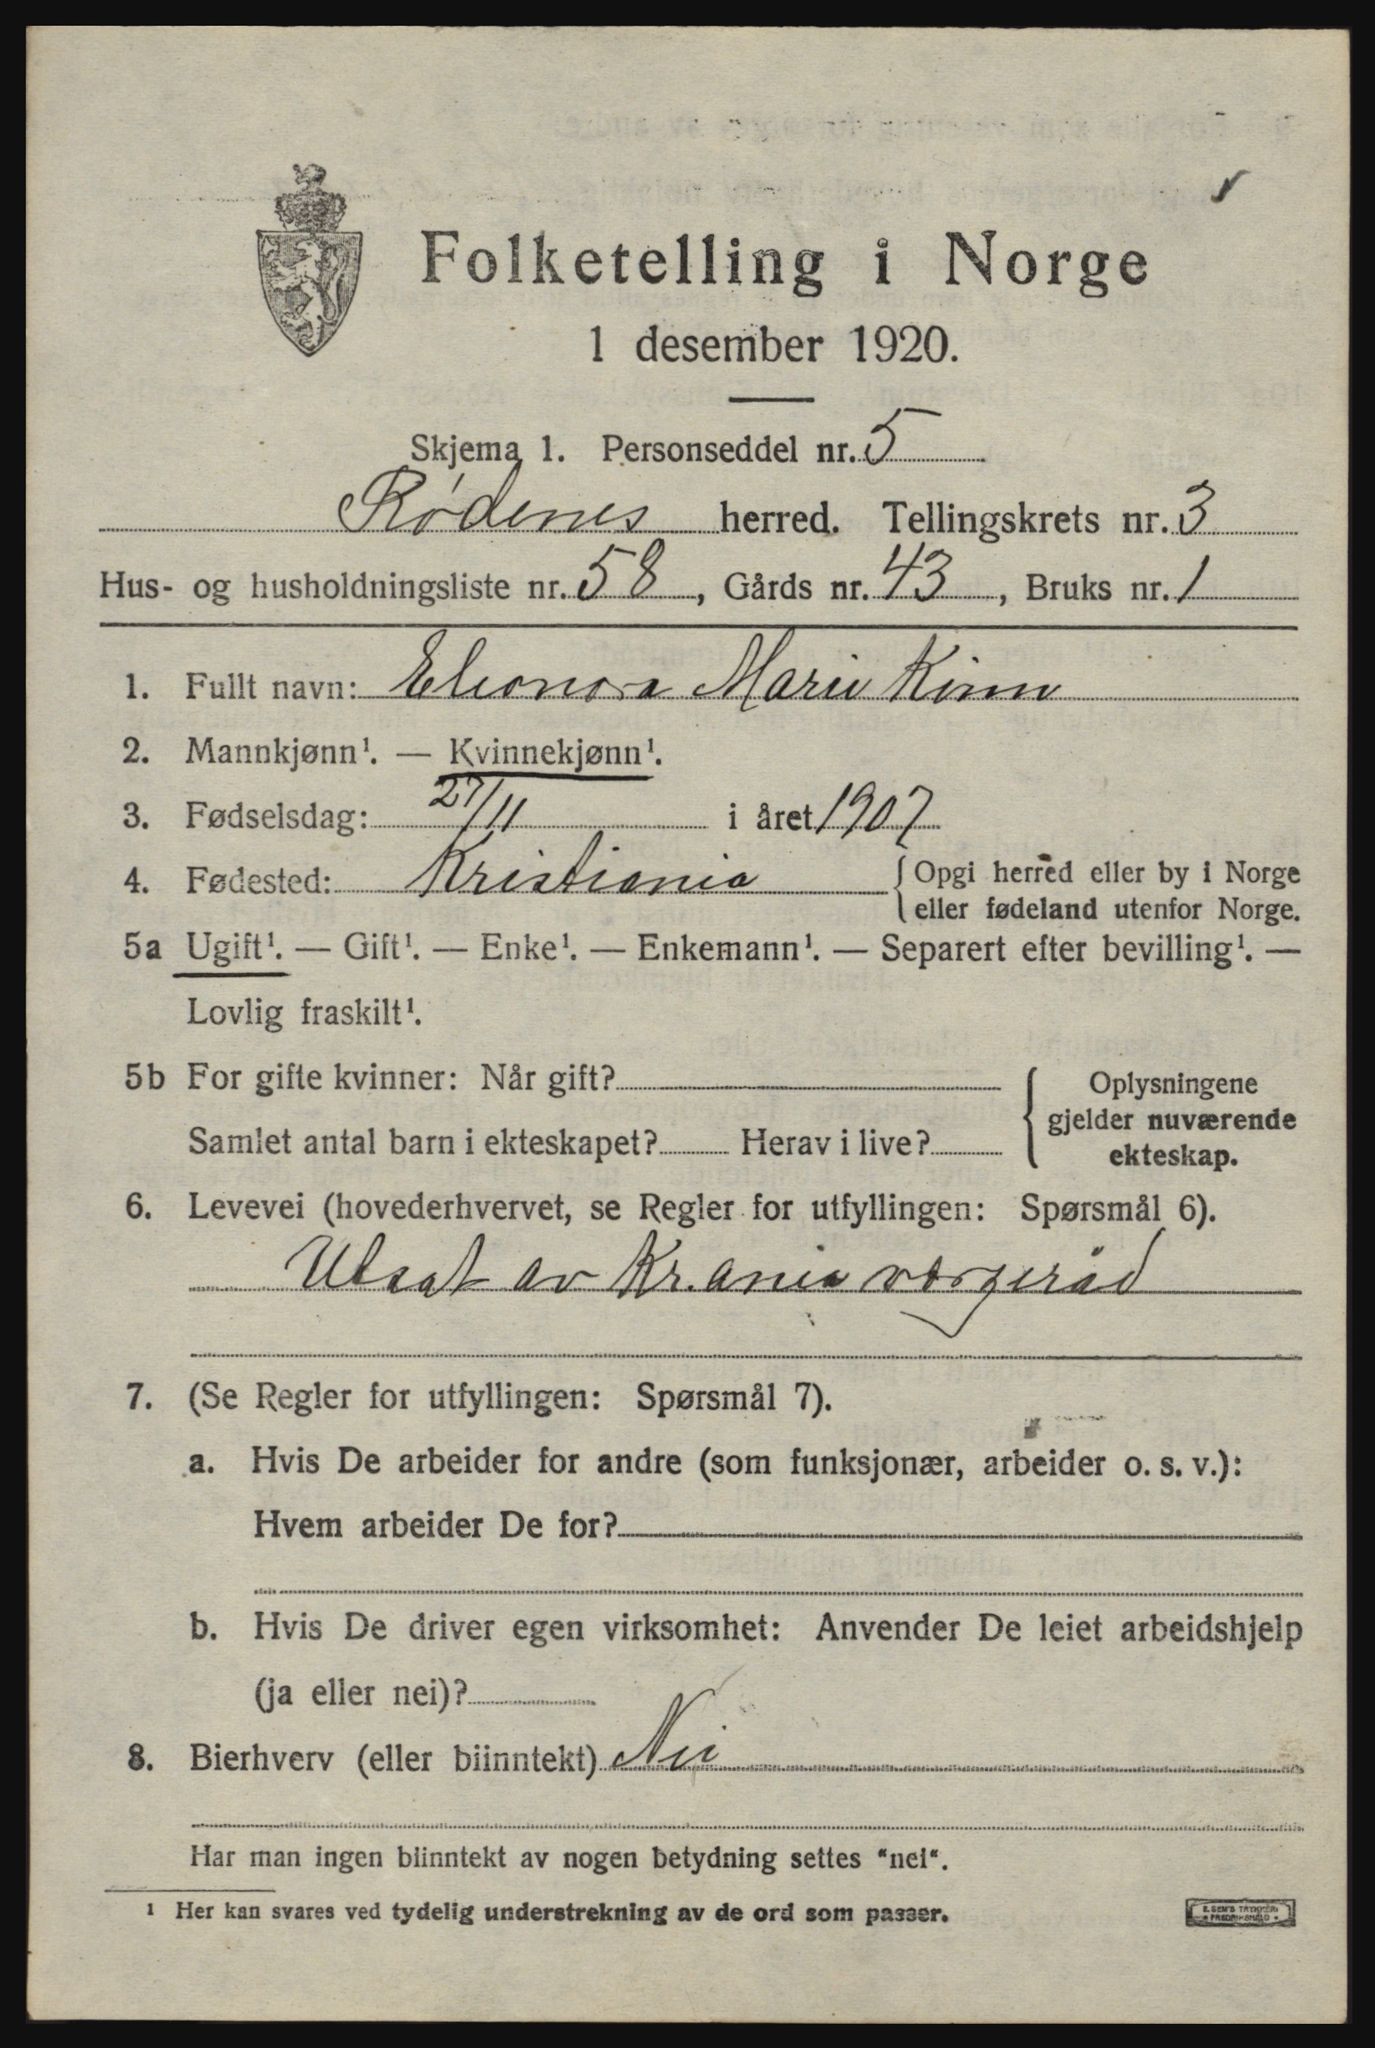 Folketelling i Norge
1 desember 1920.
Skjema 1. Personseddel nr. 5
Rødenes herred. Tellingskrets nr. 3
Hus- og husholdningsliste nr. 58, Gårds nr. 43, Bruks nr. 1
1. Fullt navn: Eleonora Marie
2. Mannkjønn¹. — Kvinnekjønn¹.
3. Fødselsdag: 27/11 i året 1907
4. Fødested: Kristiania {Opgi herred eller by i Norge
eller fødeland utenfor Norge.
5a Ugift¹. — Gift¹. — Enke¹. — Enkemann¹. — Separert efter bevilling¹. —
Lovlig fraskilt¹.
5b For gifte kvinner: Når gift?
Samlet antal barn i ekteskapet? Herav i live?
{Oplysningene
gjelder nuværende
ekteskap.
6. Levevei (hovederhvervet, se Regler for utfyllingen: Spørsmål 6).
Utsat av Kr.ania vergeråd
7. (Se Regler for utfyllingen: Spørsmål 7).
a. Hvis De arbeider for andre (som funksjonær, arbeider o. s. v.):
Hvem arbeider De for?
b. Hvis De driver egen virksomhet: Anvender De leiet arbeidshjelp
(ja eller nei)?
8. Bierhverv (eller biinntekt) Nei
Har man ingen biinntekt av nogen betydning settes "nei".
¹ Her kan svares ved tydelig understrekning av de ord som passer.